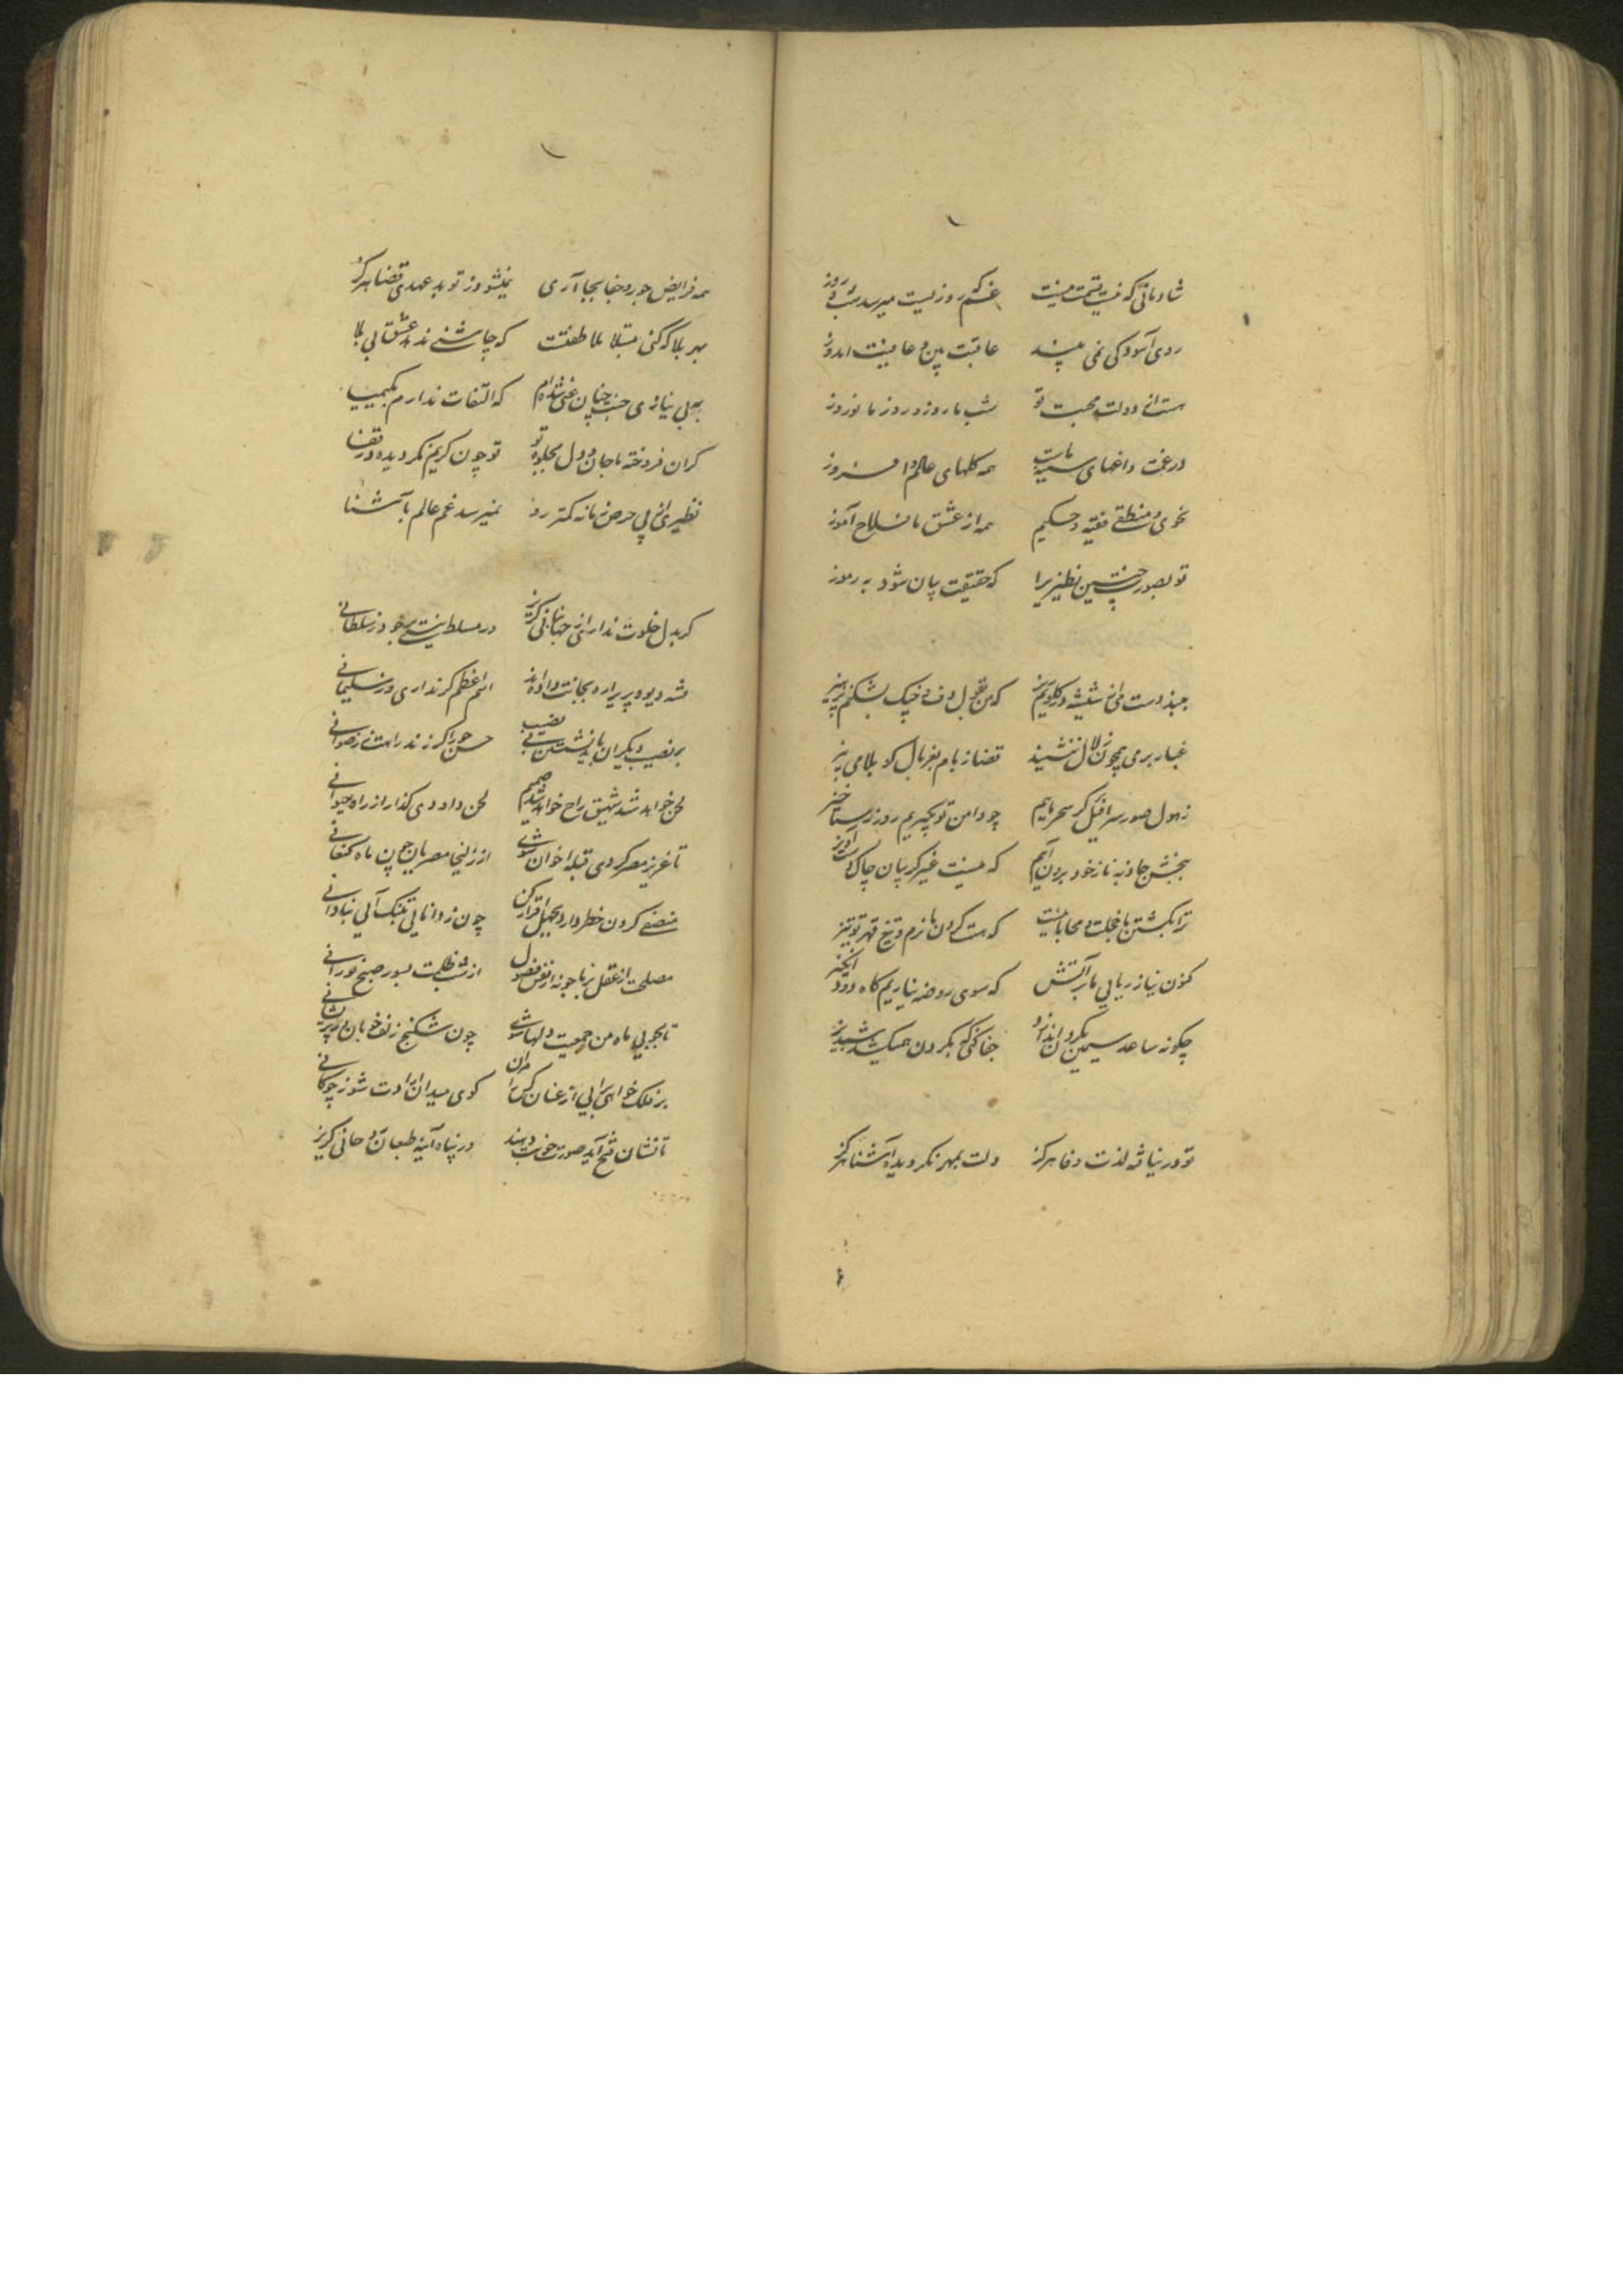 شادمانی که نیست قسمت نیست غم که روزیست میرسد شب و روز
روی آسودگی نمی بیند عاقبت بین و عافیت اندوز
هست از دولت محبت تو شب ما روز و روز ما نوروز
در غمت داغهای سینه ماست همه گلهای عالم افروز
نحوی و منطقی فقیه و حکیم همه از عشق ما صلاح آموز
تو بصورت مبین نظیری را که حقیقت بیان شود به رموز
ببند دست من از شیشه در گلویم ریز که من بقول دف و چنگ نشکنم پرهیز
غبار بر می همچون زلال ننشیند قضا ز بام بغربال گو بلا می بیز
ز هول صور سرافیل گر سحر یابیم چو دامن تو بگیریم روز رستاخیز
ببخش جاذبه تا ز خود برون آیم که نیست غیر گریبان چاک دست آویز
ترا بکشتن ما خجلت و محابا نیست که هست گردن ما نرم و تیغ قهر تو تیز
کنون نیاز ریایی ما بر آتش که سوی روضه نیاریم کاه دود انگیز
چگونه ساعد سیمین بگردن اندازد جفا کشی که بگردن همیکشد شبدیز
تو در نیافته لذت وفا هرگز دلت بمهر نگردیده آشنا هرگز
همه فرایض جور و جفا بجا آری نمیشود ز تو بد عهدی قضا هرگز
بهر بلا که کنی مبتلا ملاطفتست که چاشنی ندهد عشق بی بلا
به بی نیازی حسنت چنان غنی شده ام که التفات ندارم بکیمیا
گران فروخته ما جان و دل بجلوه تو تو چون کریم نگردیده در قفا
نظیری از پی حرص زمانه کمتر رو نمیرسد غم عالم بآشنا
گر بدل خلوت نداری از جهانبانی گریز در مسلط نیستی بر خود ز سلطانی
فتنه دیو و پری را ره بجانت داده اند اسم اعظم گر نداری در سلیمانی
بر نصیب دیگران باید نشستن بی نصیب حسن حورا گر نزند راهت ز رضوانی
لحن خواهد شد شهیق راح خواهد شد حمیم لحن داودی گذار از راح ریحانی
تا عزیز مصر گردی قبله اخوان شوی از زلیخا مصریان چون ماه کنعانی
منصفی کردن خطر دارد بجهل اقرار کن چون ز دانایی بتنگ آیی بنادانی
مصلحت از عقل برنا جو نه از نفس فضول از شب ظلمت بسور صبح نورانی
تا بجویی ماه من جمعیت دلها شوی چون شکنج زلف خوبان در پریشانی
بر فلک خواهی برایی از عنان کس مران گوی میدان ارادت شو ز چوگانی
تا نشان قبح آید صورت خوبت دهند در پناه آینه طبعان روحانی گریز